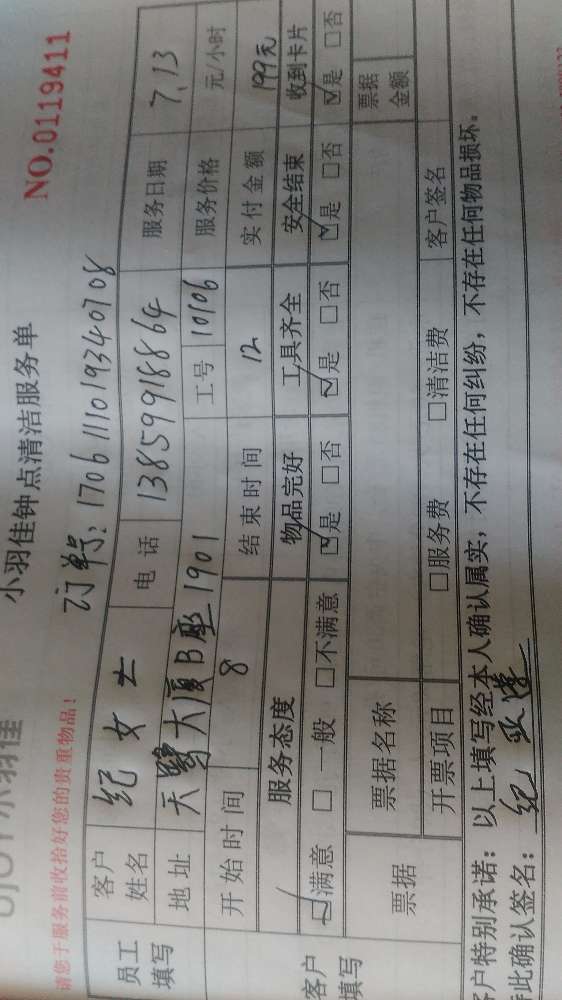 小羽佳
小羽佳钟点清洁服务单
NO.0119411
请您于服务前收拾好您的贵重物品！
订单号：1706111019340708
员工填写
客户姓名 纪女士 电话 13859918864 服务日期 7.13
地址 天鹭大厦B座1901 工号 10106 服务价格 元/小时
开始时间 8 结束时间 12 实付金额 199元
客户填写
服务态度 物品完好 工具齐全 安全结束 收到卡片
☑满意 □一般 □不满意 ☑是 □否 ☑是 □否 ☑是 □否 ☑是 □否
票据 票据名称 票据金额
开票项目 □服务费 □清洁费 客户签名
客户特别承诺：以上填写经本人确认属实，不存在任何纠纷，不存在任何物品损坏。
此确认签名：纪